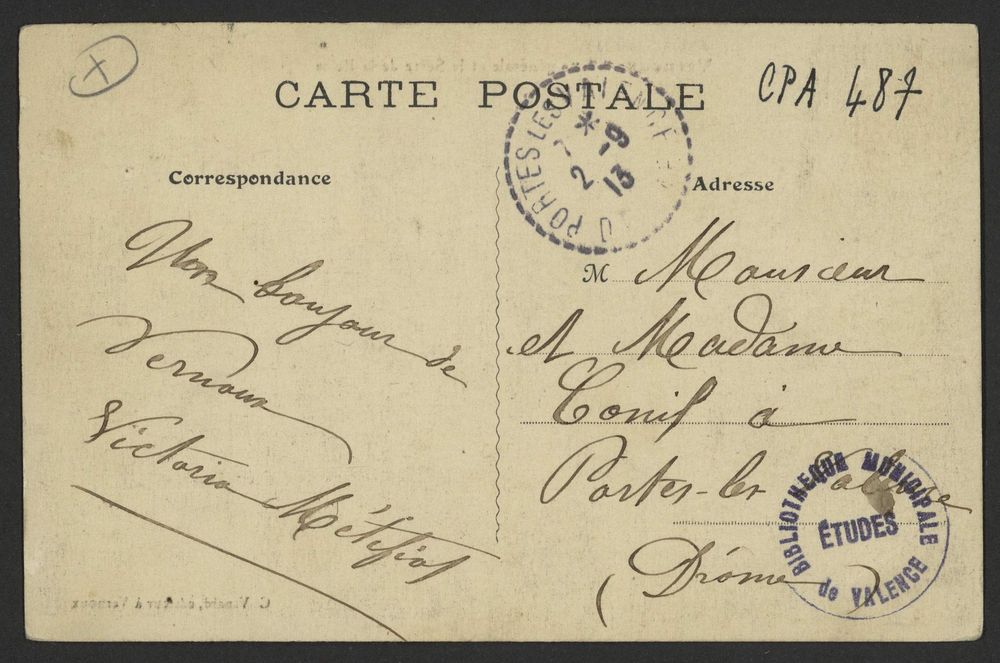 CARTE POSTALE
CPA 487
PORTES LES VALENCE
* 7 -9
2 13
Correspondance
Adresse
Mon bonjour de
Vernoux
Victoria Métifiot
M Monsieur
et Madame
Conil à
Portes-les Valence
(Drôme)
BIBLIOTHEQUE MUNICIPALE
ÉTUDES
de VALENCE
éditeur à Vernoux